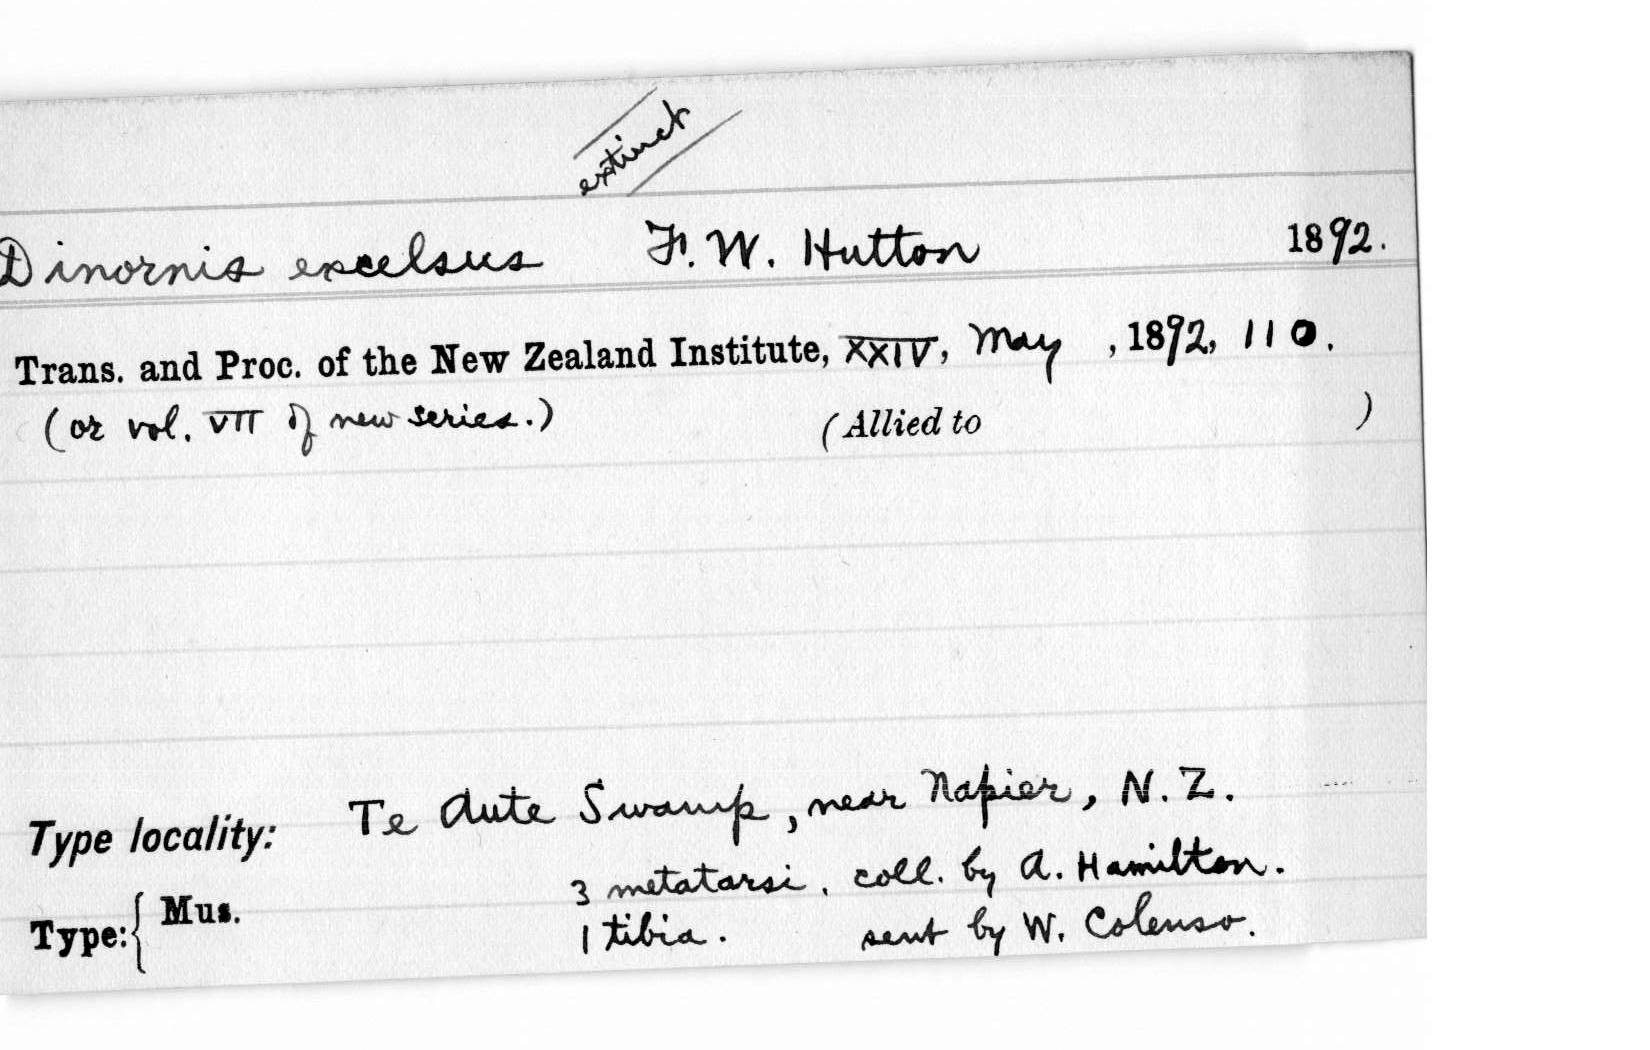 extinct
Dinornis excelsus F. W. Hutton 1892.
Trans. and Proc. of the New Zealand Institute, XXIV, May , 1892, 110.
(or vol. VII of new series.) (Allied to )
Type locality: Te Aute Swamp, near Napier, N. Z.
3 metatarsi, coll. by A. Hamilton.
Type: { Mus.
1 tibia. sent by W. Colenso.